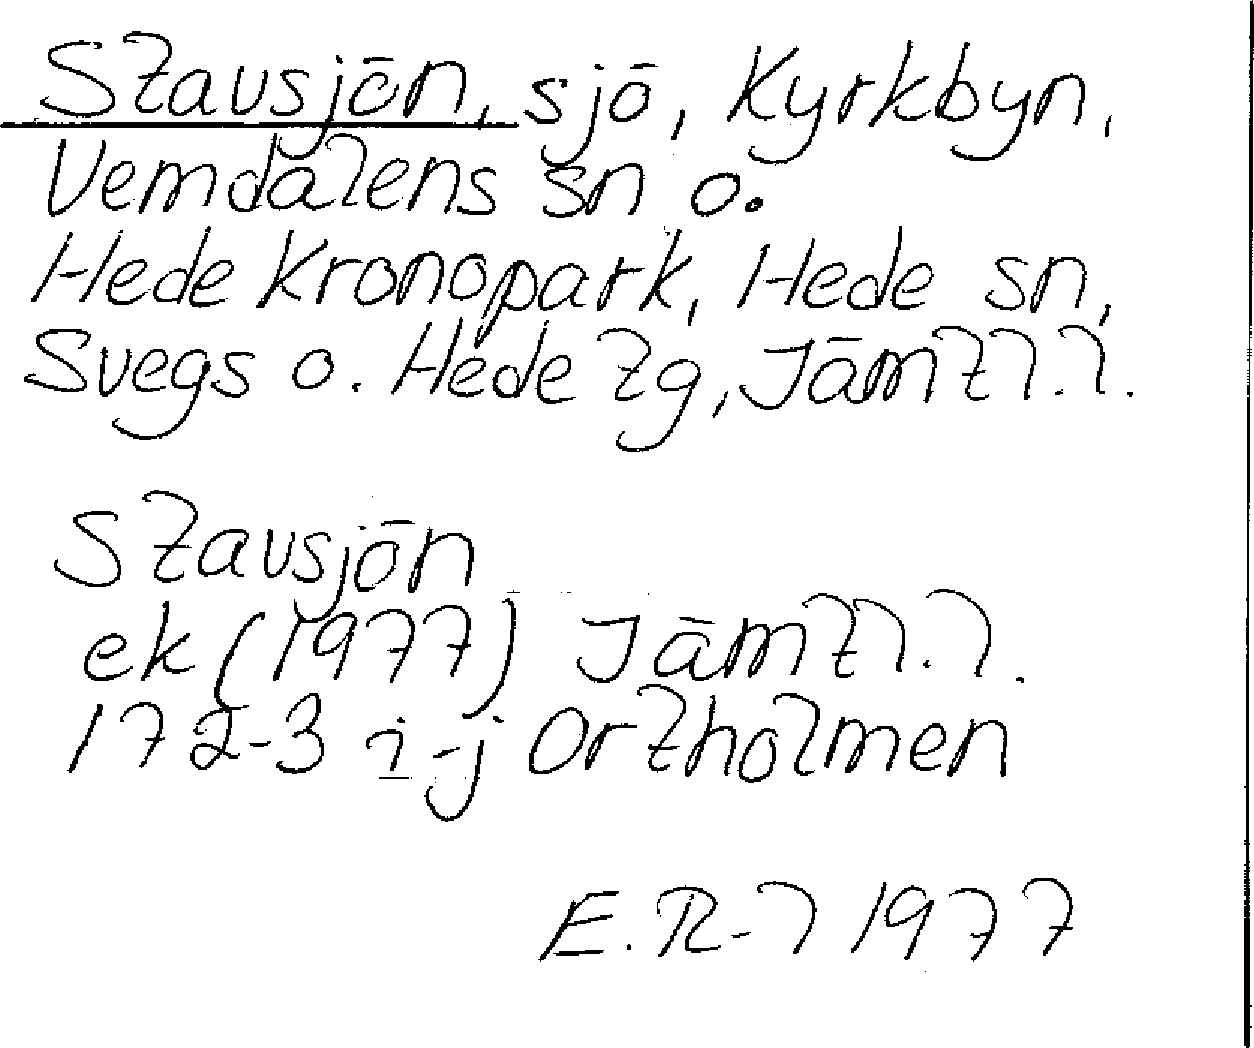 Stavsjön, sjö, Kyrkbyn,
Vemdalens sn o.
Hede kronopark, Hede sn,
Svegs o. Hede tg, Jämtl.l.
Stavsjön
ek (1977) Jämtl.l.
172-3 i-j Ortholmen
E.R-l 1977